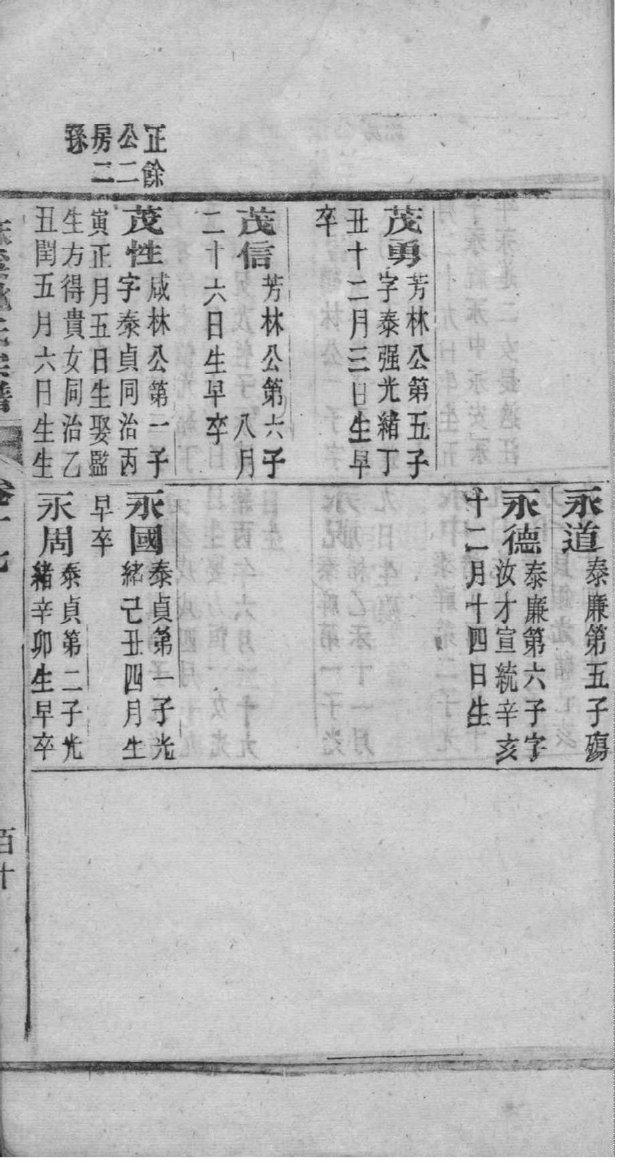 正餘
公二
房二
孫
茂勇芳林公第五子
字泰强光緒丁
丑十二月三日生早
卒
茂信芳林公第六子
八月
二十六日生早卒
茂性咸林公第一子
字泰貞同治丙
寅正月五日生娶監
生方得貴女同治乙
丑閏五月六日生生
永道泰廉第五子殤
永德泰廉第六子字
汝才宣統辛亥
十二月十四日生
永國泰貞第一子光
緒己丑四月生
早卒
永周泰貞第二子光
緒辛卯生早卒
宗譜
卷十九
百十